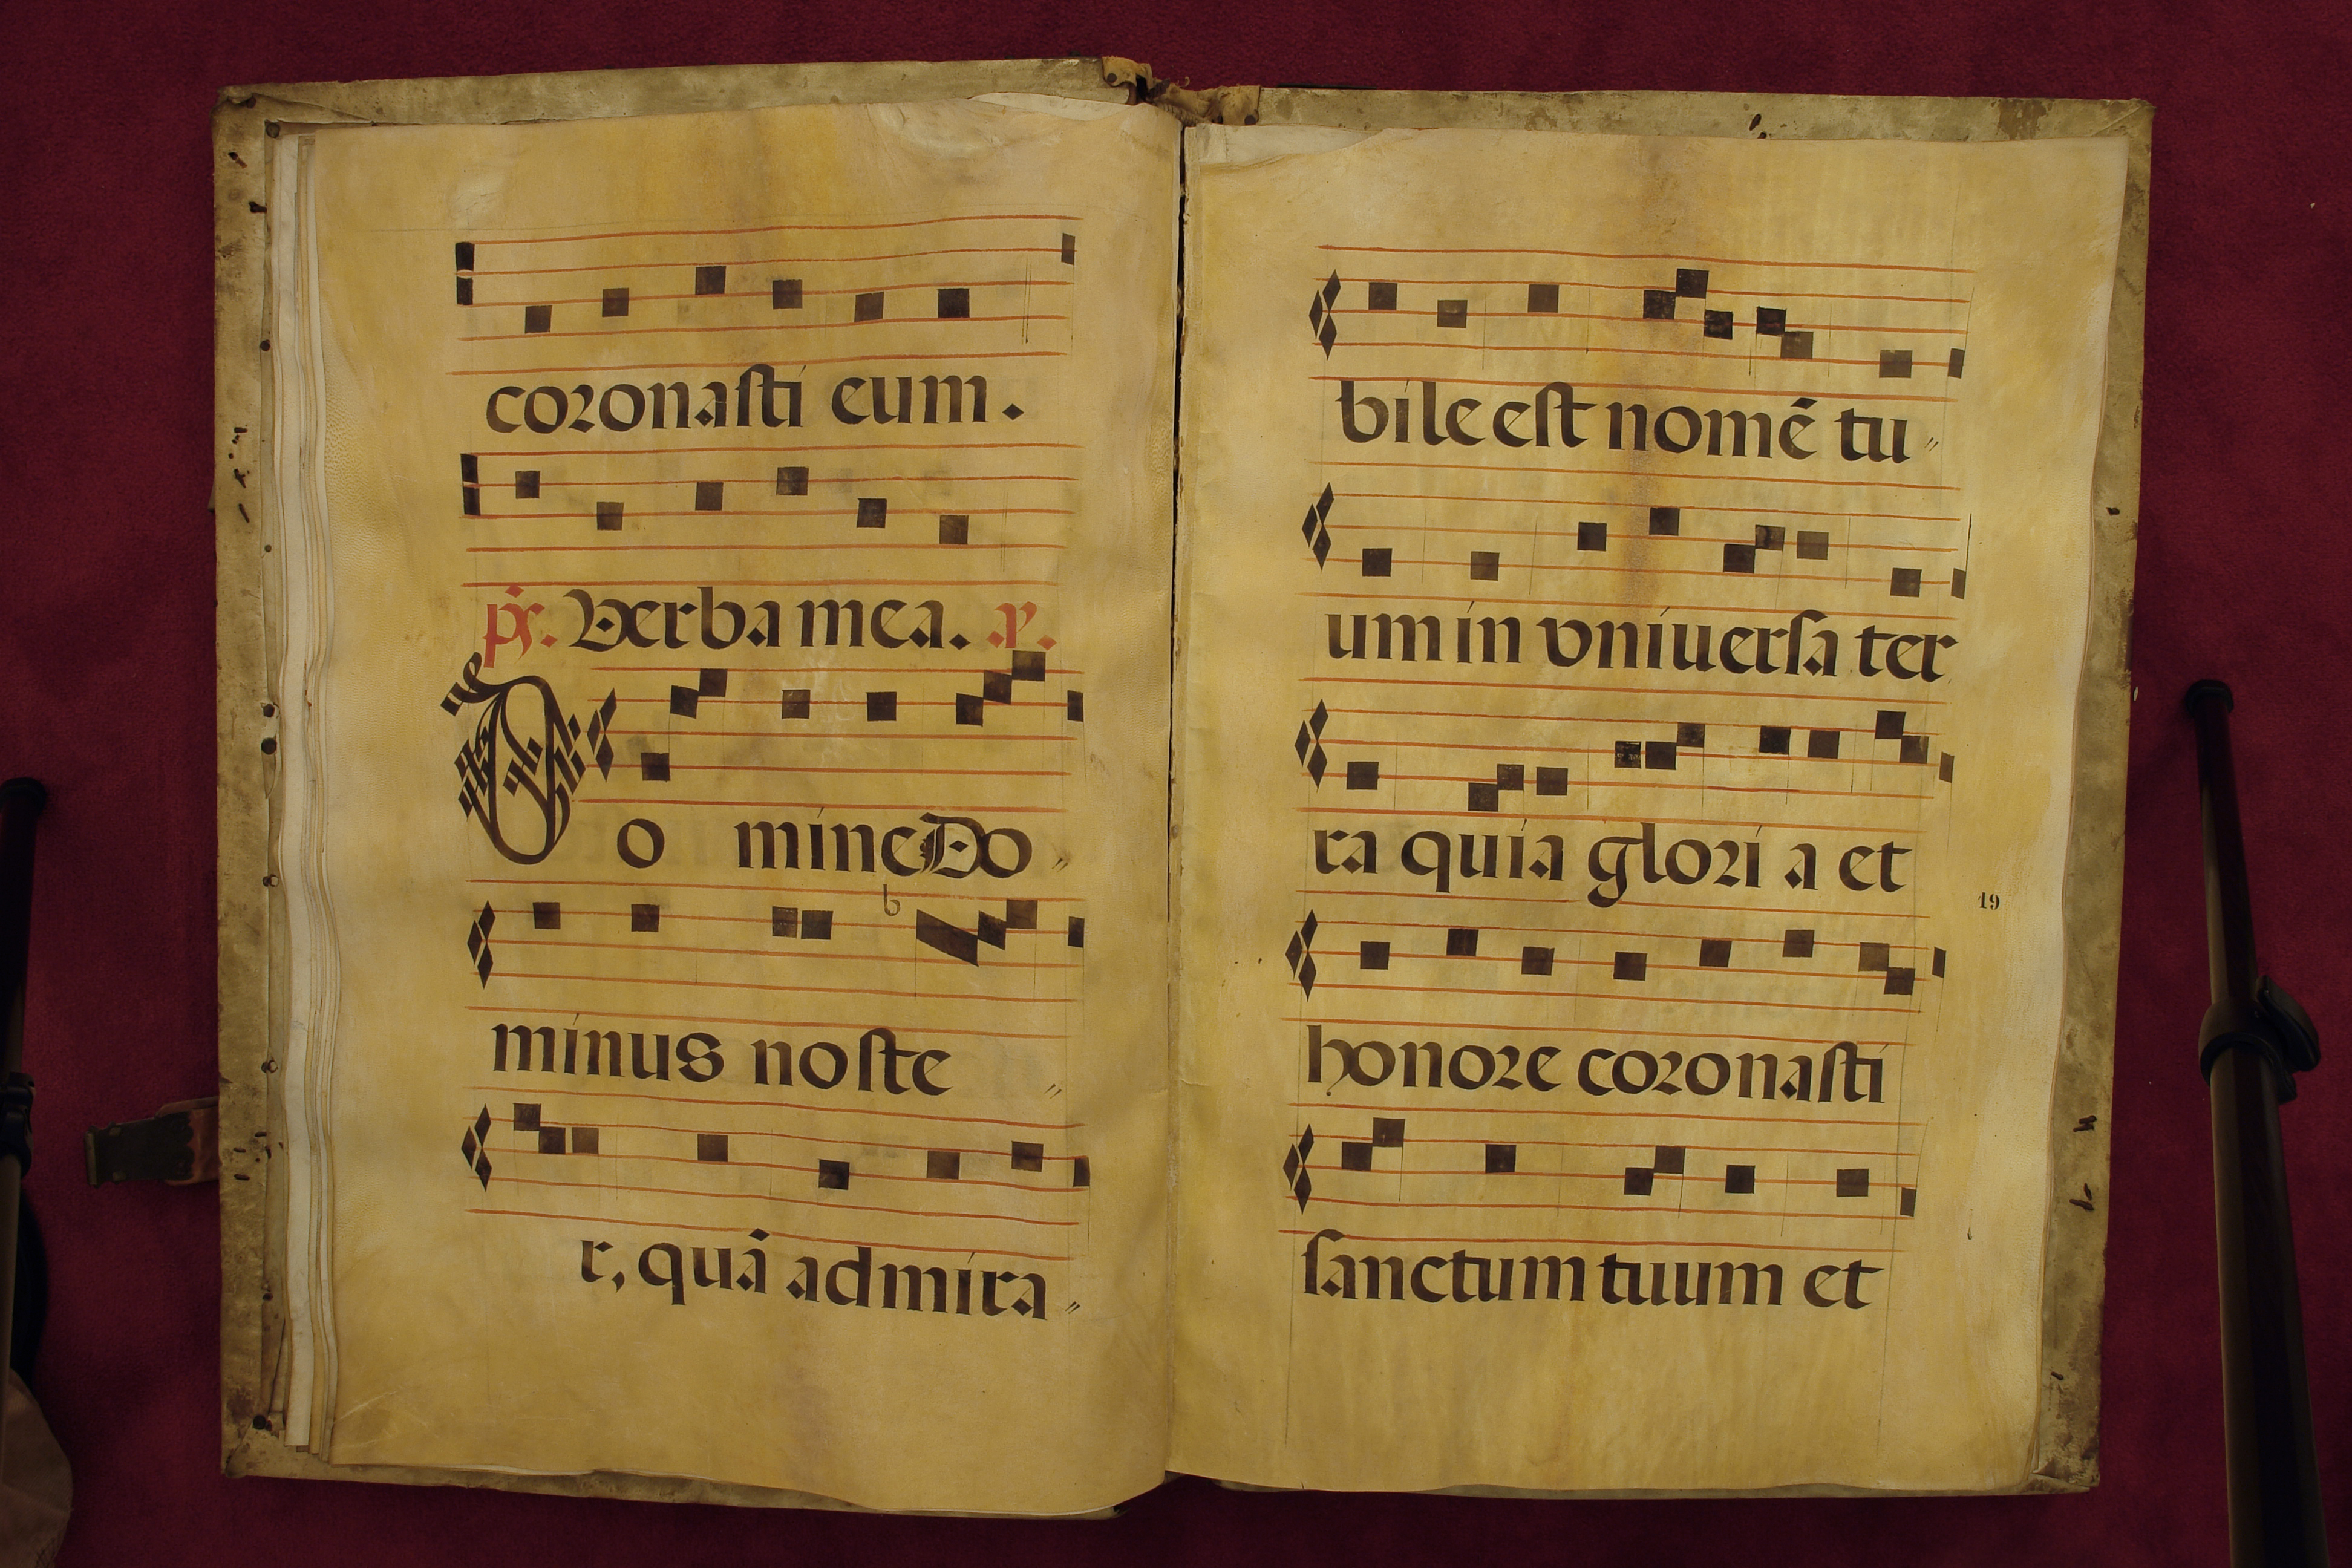 coronasti eum.
ps. Verba mea. a.
Do mine Do
minus noste
r, quã admira
bile est nomẽ tu
um in vniuersa ter
ra quia glori a et
19
honore coronasti
sanctum tuum et